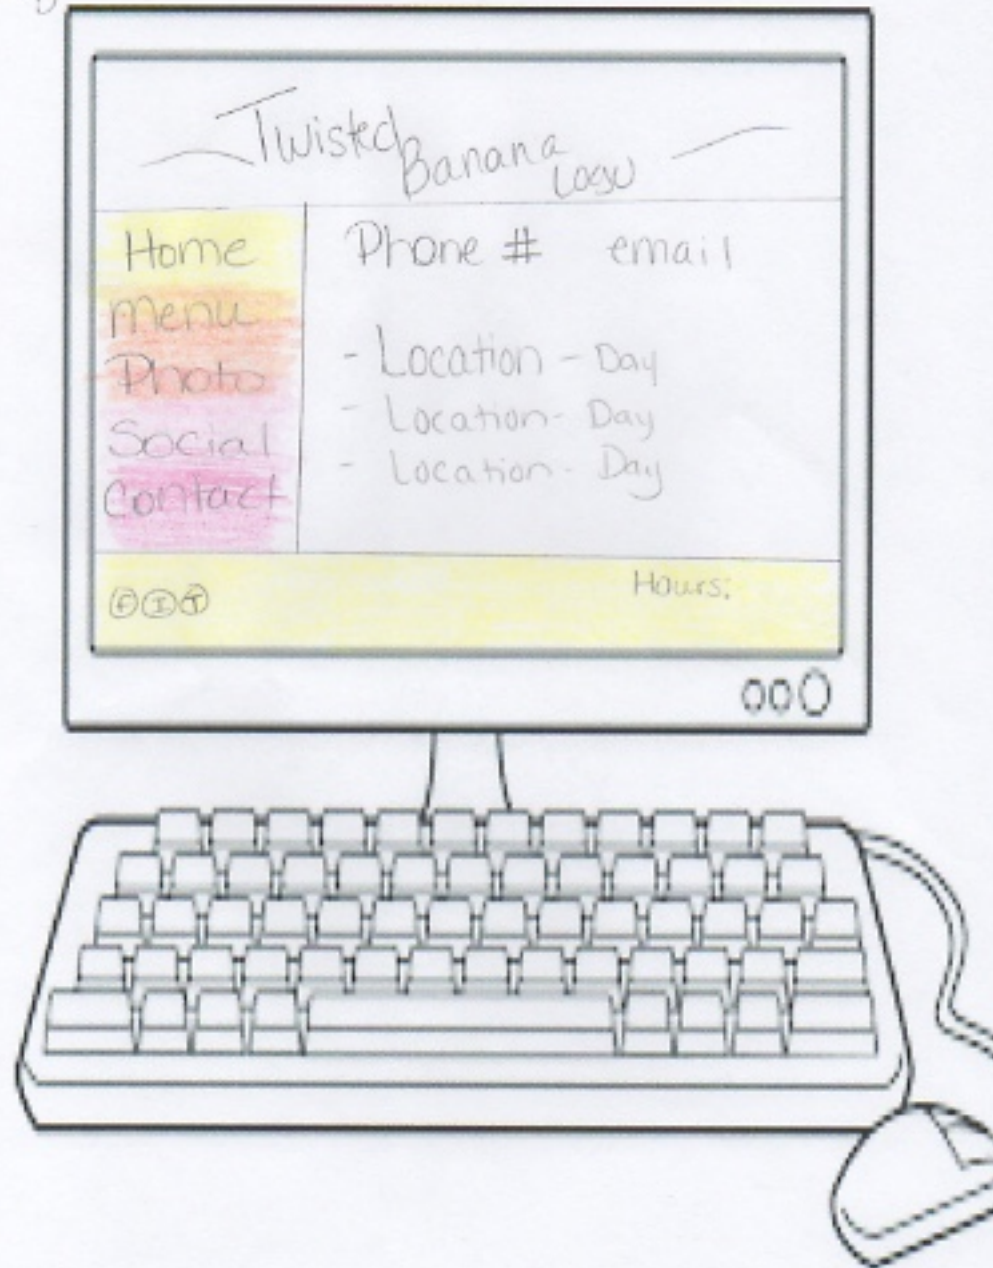 Twisted Banana Logo
Home
Menu
Photo
Social
Contact
Phone # email
- Location - Day
- Location - Day
- Location - Day
F I T
Hours: